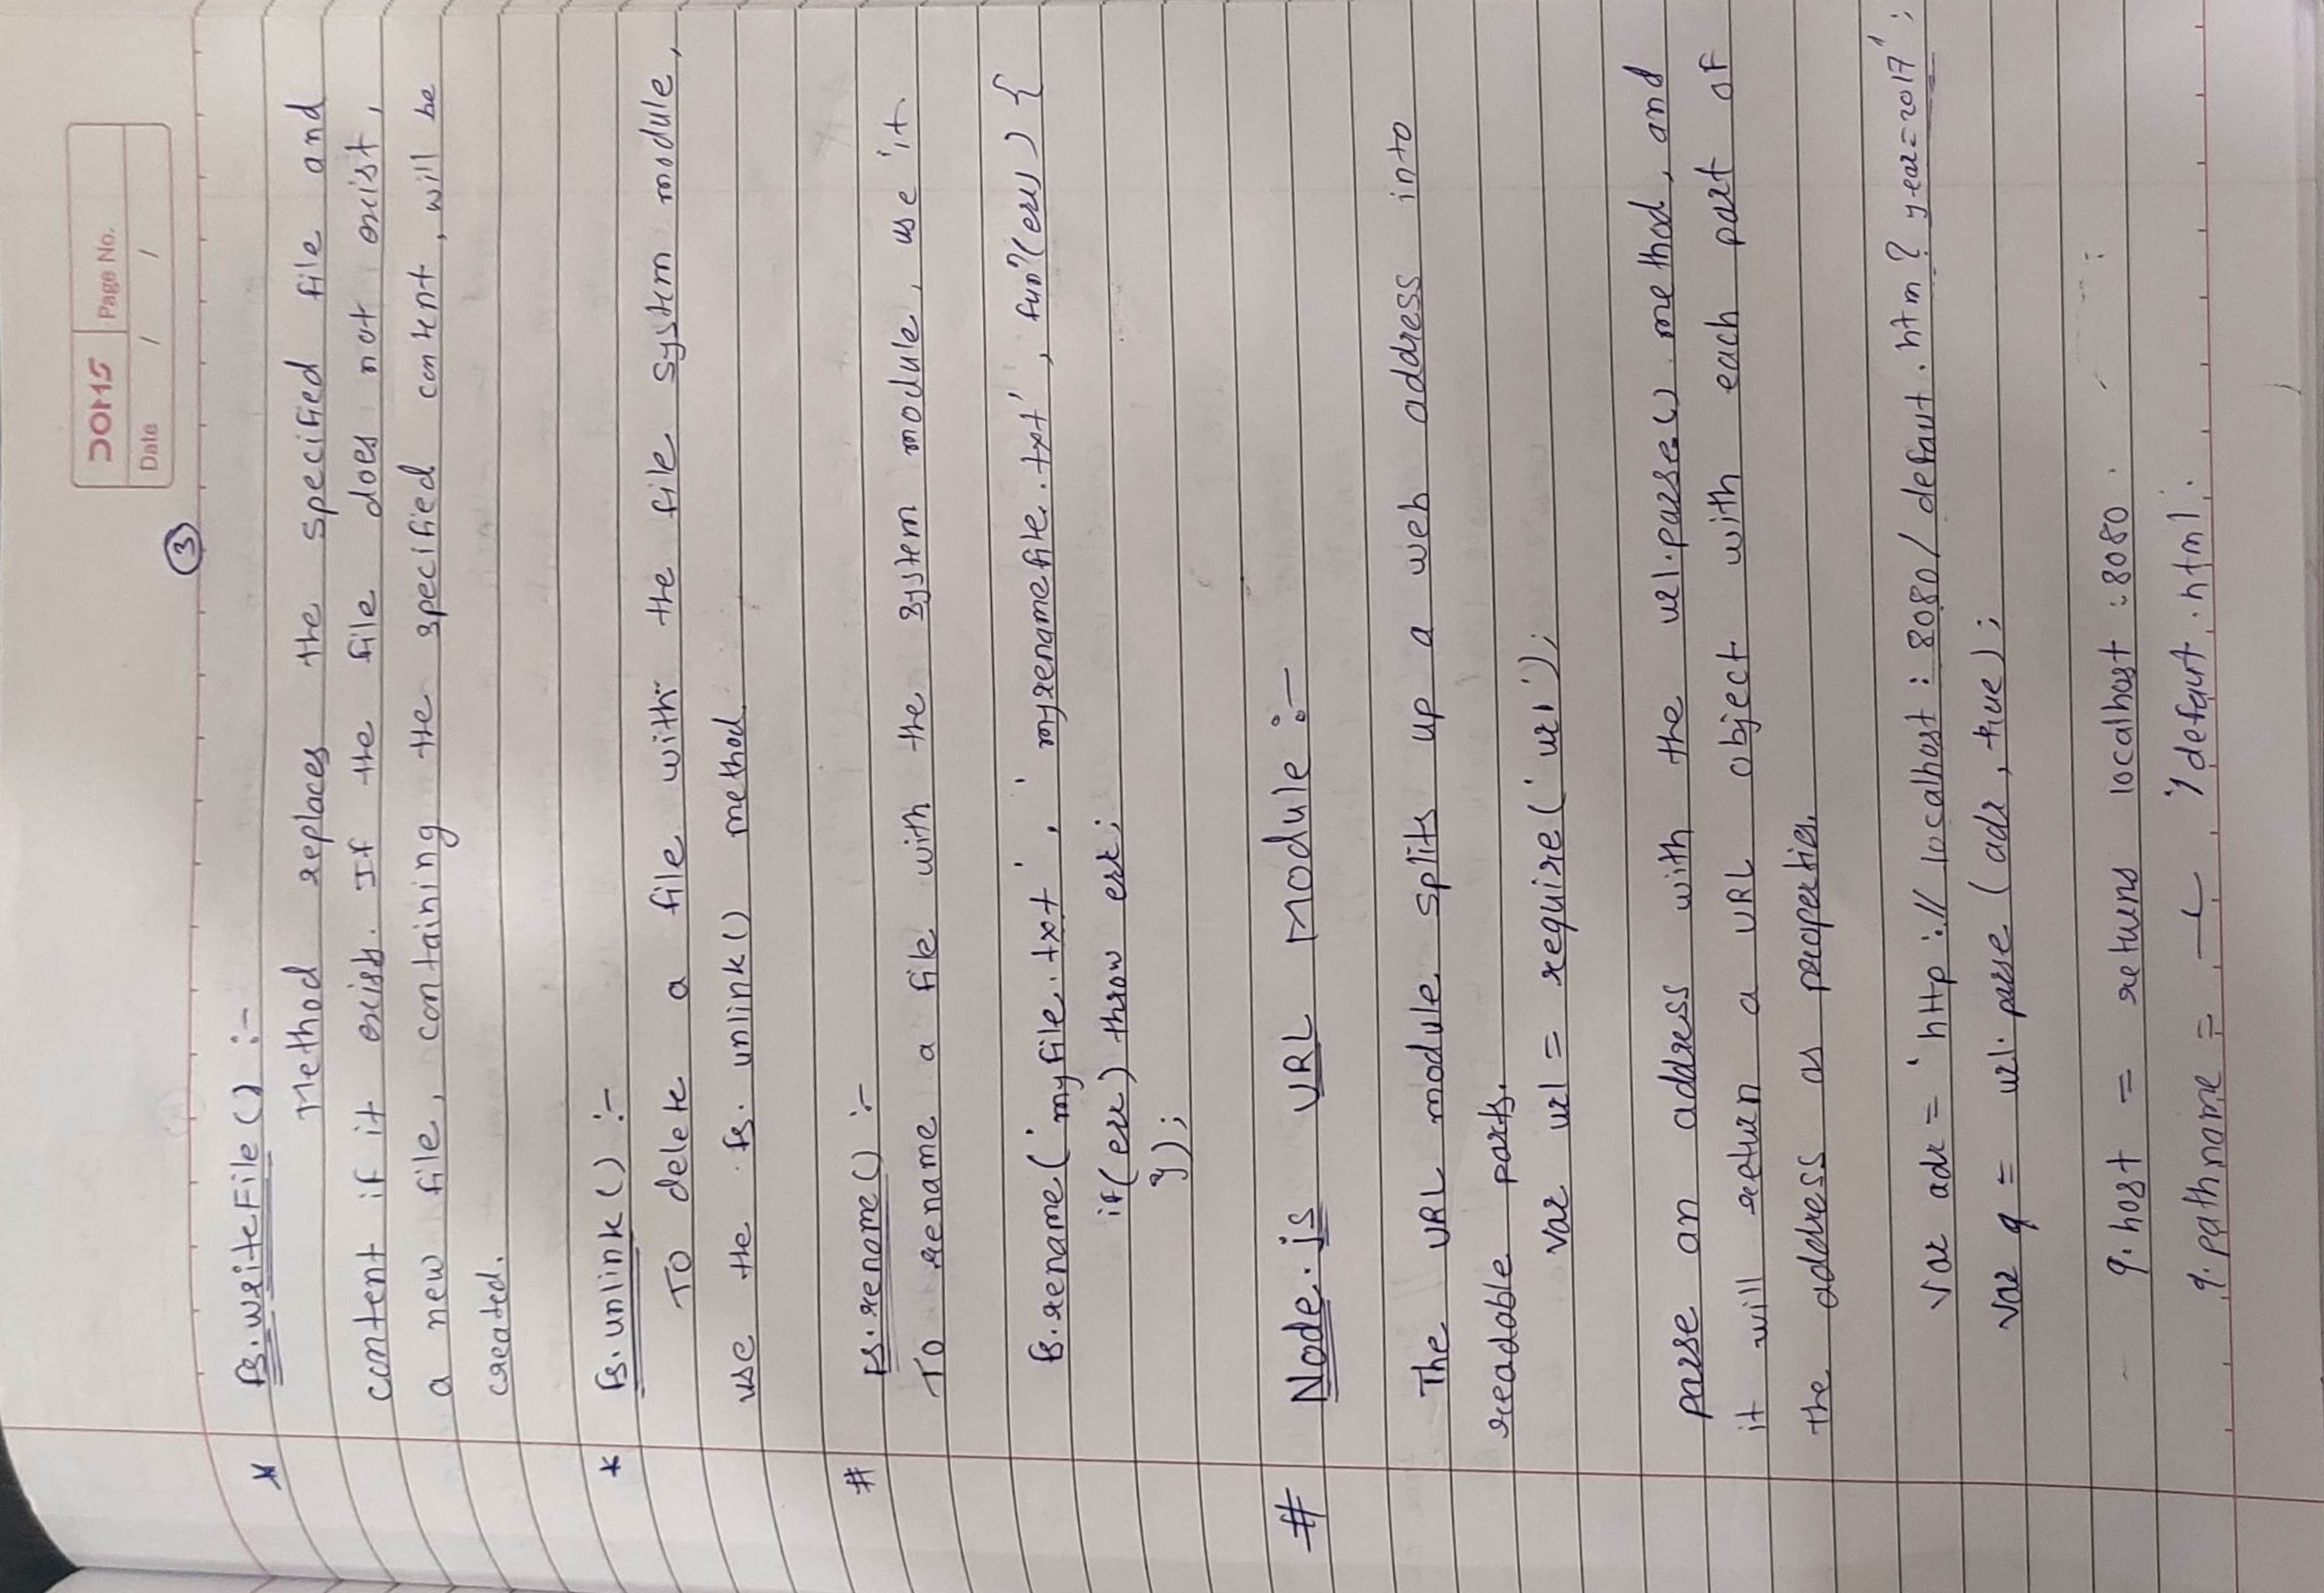 DOMS Page No.
Date / /
3
* fs.writeFile() :-
Method replaces the specified file and
content if it exists. If the file does not exist,
a new file, containing the specified content, will be
created.
* fs.unlink() :-
To delete a file with the file system module,
use the fs.unlink() method.
# fs.rename() :-
To rename a file with the system module, use it.
fs.rename('myfile.txt', 'myrenamefile.txt', funⁿ(err) {
if(err) throw err;
});
# Node.js URL Module :-
The URL module splits up a web address into
readable parts.
var url = require('url');
parse an address with the url.parse() method, and
it will return a URL object with each part of
the address as properties.
var adr = 'http://localhost:8080/defaut.htm?year=2017';
var q = url.parse(adr, true);
q.host = returns localhost:8080.
q.pathname = '/defaut.html'.